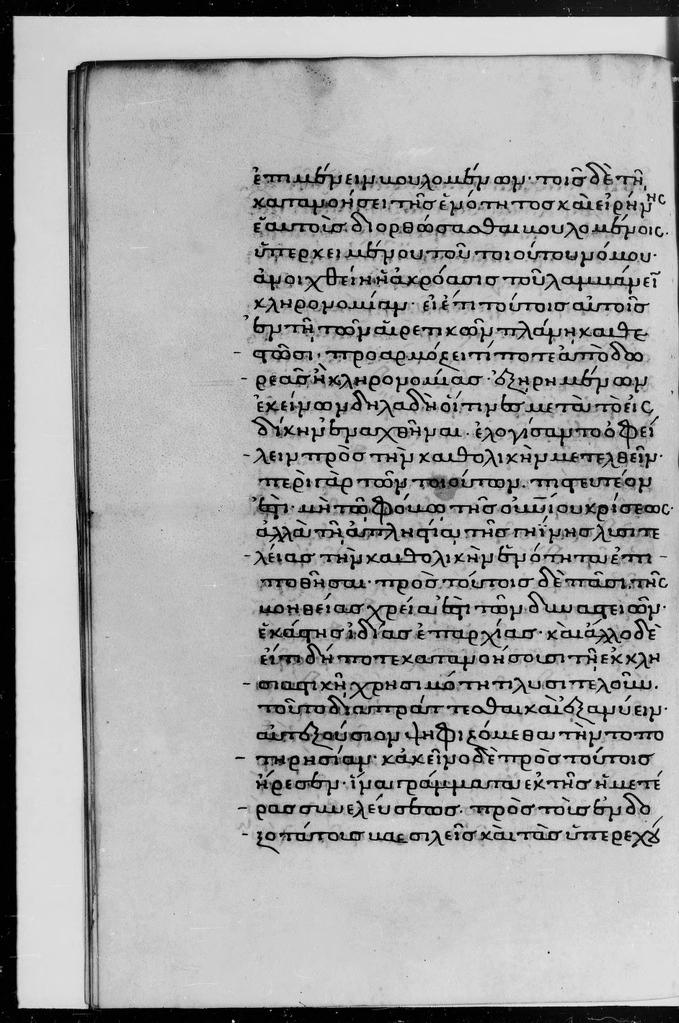 ἐπιμένειν βουλομένων· τοῖς δὲ τῆ
κατανοήσει τῆς ἑνότητος καὶ εἰρήνης
ἑαυτοῖς διορθώσασθαι βουλομένοις.
ὑπερκειμένου τοῦ τοιούτου νόμου·
ἀνοιχθείη ἡ ἀκρόασις τοῦ λαμμάνειν
κληρονομίαν· εἰ ἔτι τούτοις αὐτοῖς
ἐν τῆ τῶν αἱρετικῶν πλάνη καθε
στῶσι· προαρμόσει τί ποτε ἀπὸ δω
ρεᾶς ἢ κληρονομίας· ἐξηρημένων
ἐκείνων δηλαδὴ οἵτινες μετὰ τὸ εἰς
δίκην ἐναχθῆναι· ἐλογίσαντο ὀφεί
λειν πρὸς τὴν καθολικὴν μετελθεῖν·
περὶ γὰρ τῶν τοιούτων. πιστευτέον
ἐστὶ· μὴ τῶ φόβω τῆς οὐνίου κρίσεως.
ἀλλὰ τῆ ἀπληστία τῆς γηίνης λυσιτε
λείας τὴν καθολικὴν ἑνότητα ἐπι
ποθῆσαι· πρὸς τούτοις δὲ πᾶσι, τῆς
βοηθείας χρεία ἐστὶ τῶν δυναστειῶν·
ἑκάστης ἰδίας ἐπαρχίας· καὶ ἄλλο δὲ
εἴ τι δή ποτε κατανοήσουσι τῆ ἐκκλη
σιαστικῆ χρησιμότητι λυσιτελοῦν.
τοῦτο διαπράττεσθαι καὶ ἐξανύειν·
αὐτεξούσιον ψηφιζόμεθα τὴν τοπο
τηρησίαν· κἀκεῖνο δὲ πρὸς τούτοις
ἤρεσεν· ἵνα γράμματα ἐκ τῆς ἡμετέ
ρας συνελεύσεως. πρὸς τοὺς ἐνδο
ξοτάτους βασιλεῖς καὶ τὰς ὑπερεχού